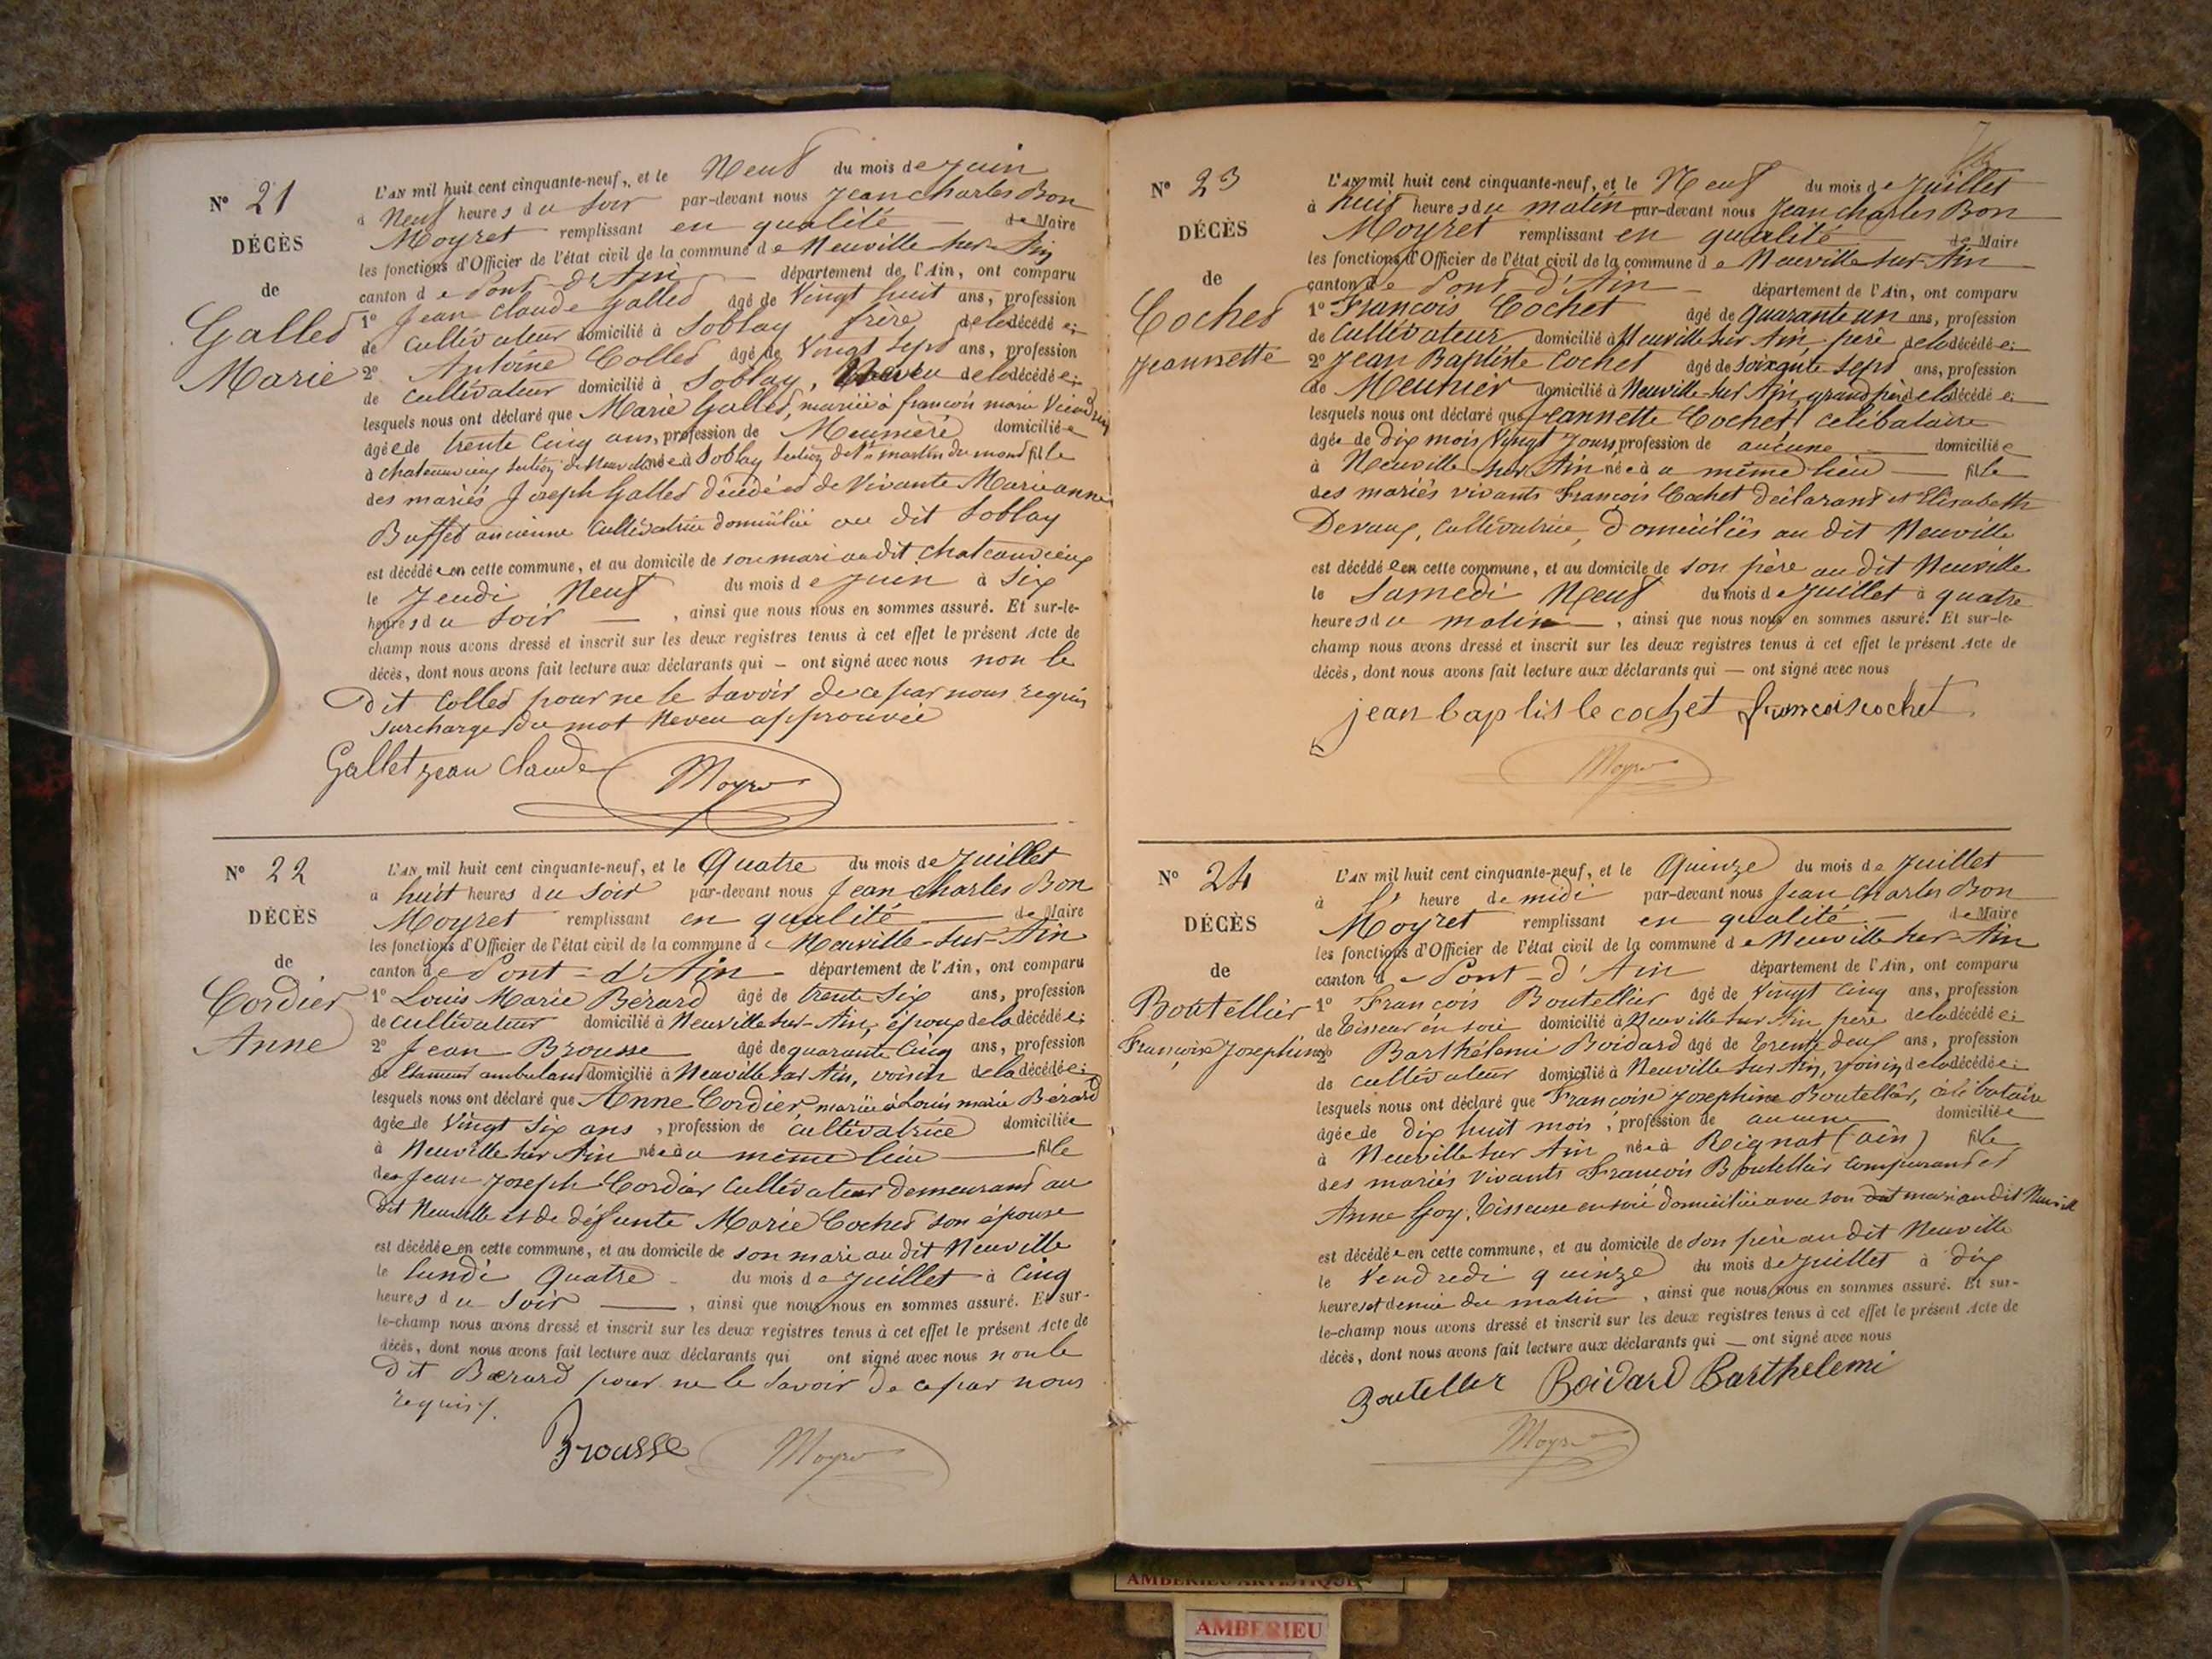 N° 21
DÉCÈS
de
Gallet
Marie
L'AN mil huit cent cinquante-neuf, et le Neuf du mois de Juin
à Neuf heures du Soir par-devant nous Jean Charles Bon
Moyret remplissant en qualité de Maire
les fonctions d'Officier de l'état civil de la commune de Neuville sur Ain
canton de Pont-d'Ain département de l'Ain, ont comparu
1° Jean Claude Gallet âgé de Vingt huit ans, profession
de cultivateur domicilié à Soblay frère de la décédée;
2° Antoine Collet âgé de Vingt Sept ans, profession
de cultivateur domicilié à Soblay, Neveu de la décédée;
lesquels nous ont déclaré que Marie Gallet, mariée à françois marie
âgée de trente Cinq ans, profession de Meunière domiciliée
à chateauvieux section de Neuville née à Soblay section de St martin du mont fille
des mariés Joseph Gallet décédé et de Vivante Marie anne
Buffet ancienne Cultivatrice domiciliée au dit Soblay
est décédée en cette commune, et au domicile de son mari au dit Chateauvieux
le Jeudi Neuf du mois de Juin à Six
heures du Soir , ainsi que nous nous en sommes assuré. Et sur-le-
champ nous avons dressé et inscrit sur les deux registres tenus à cet effet le présent Acte de
décès, dont nous avons fait lecture aux déclarants qui — ont signé avec nous non le
Dit Collet pour ne le Savoir de ce par nous requis
Surcharge du mot Neveu approuvée
Gallet jean claude Moyret
N° 22
DÉCÈS
de
Cordier
Anne
L'AN mil huit cent cinquante-neuf, et le Quatre du mois de Juillet
à huit heures du Soir par-devant nous Jean Charles Bon
Moyret remplissant en qualité de Maire
les fonctions d'Officier de l'état civil de la commune de Neuville-Sur-Ain
canton de Pont-d'Ain département de l'Ain, ont comparu
1° Louis Marie Bérard âgé de trente Six ans, profession
de cultivateur domicilié à Neuville Sur-Ain, époux de la décédée;
2° Jean Brousse âgé de quarante Cinq ans, profession
de Etameur ambulant domicilié à Neuville sur Ain, voisin de la décédée;
lesquels nous ont déclaré que Anne Cordier mariée à Louis marie Bérard
âgée de Vingt Six ans , profession de cultivatrice domiciliée
à Neuville sur Ain née au même lieu fille
des Jean Joseph Cordier Cultivateur demeurant au
dit Neuville et de défunte Marie Cochet son épouse
est décédée en cette commune, et au domicile de son mari au dit Neuville
le Lundi Quatre du mois de Juillet à Cinq
heures du Soir , ainsi que nous nous en sommes assuré. Et sur-
le-champ nous avons dressé et inscrit sur les deux registres tenus à cet effet le présent Acte de
décès, dont nous avons fait lecture aux déclarants qui ont signé avec nous non le
Dit Bérard pour ne le Savoir de ce par nous
requis.
Brousse Moyret
N° 23
DÉCÈS
de
Cochet
Jeannette
L'AN mil huit cent cinquante-neuf, et le Neuf du mois de Juillet
à huit heures du matin par-devant nous Jean Charles Bon
Moyret remplissant en qualité de Maire
les fonctions d'Officier de l'état civil de la commune de Neuville sur-Ain
canton de Pont-d'Ain département de l'Ain, ont comparu
1° François Cochet âgé de quarante un ans, profession
de Cultivateur domicilié à Neuville sur Ain père de la décédée;
2° Jean Baptiste Cochet âgé de Soixante Sept ans, profession
de Meunier domicilié à Neuville-sur Ain, grand père de la décédée;
lesquels nous ont déclaré que Jeannette Cochet Célibataire
âgée de Dix mois Vingt Jours, profession de aucune domiciliée
à Neuville sur Ain née à u même lieu fille
des mariés vivants François Cochet déclarant et Elisabeth
Devaux, cultivatrice, domiciliés au dit Neuville
est décédée en cette commune, et au domicile de son père au dit Neuville
le Samedi Neuf du mois de Juillet à quatre
heures du matin , ainsi que nous nous en sommes assuré. Et sur-le-
champ nous avons dressé et inscrit sur les deux registres tenus à cet effet le présent Acte de
décès, dont nous avons fait lecture aux déclarants qui — ont signé avec nous
jean baptiste cochet francois cochet
Moyret
N° 24
DÉCÈS
de
Boutellier
Françoise Josephine
L'AN mil huit cent cinquante-neuf, et le Quinze du mois de Juillet
à l' heure de midi par-devant nous Jean Charles Bon
Moyret remplissant en qualité de Maire
les fonctions d'Officier de l'état civil de la commune de Neuville sur-Ain
canton de Pont-d'Ain département de l'Ain, ont comparu
1° François Boutellier âgé de Vingt Cinq ans, profession
de Tisseur en soie domicilié à Neuville sur Ain père de la décédée;
2° Barthélemi Boidard âgé de Trente deux ans, profession
de cultivateur domicilié à Neuville sur Ain, voisin de la décédée;
lesquels nous ont déclaré que Françoise Josephine Boutellier, célibataire
âgée de dix huit mois , profession de aucune domiciliée
à Neuville sur Ain née à Reignat (ain) fille
des mariés vivants François Boutellier comparant et
Anne Goy, Tisseuse en soie domiciliée avec son dit mari au dit Neuville
est décédée en cette commune, et au domicile de son père au dit Neuville
le Vendredi quinze du mois de Juillet à dix
heures et demie du matin , ainsi que nous nous en sommes assuré. Et sur-
le-champ nous avons dressé et inscrit sur les deux registres tenus à cet effet le présent Acte de
décès, dont nous avons fait lecture aux déclarants qui — ont signé avec nous
Boutellier Boidard Barthelemi
Moyret
AMBERIEU ARTISTIQUE
AMBERIEU